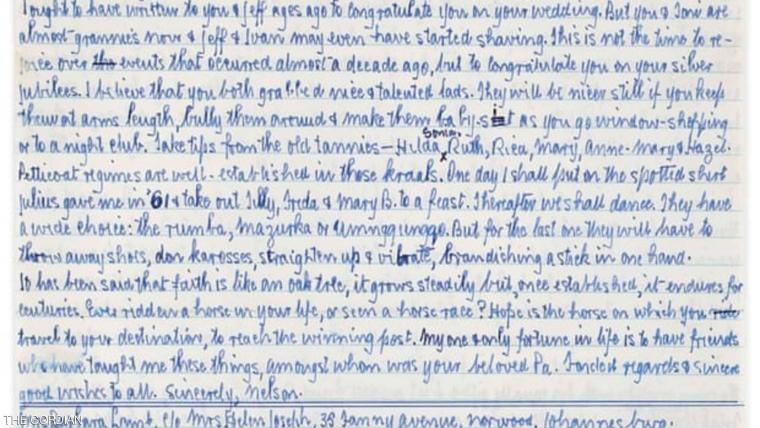 I ought to have written to you & Jeff ages ago to congratulate you on your wedding. But you & Toni are
almost grannies now & Jeff & Ivan may even have started shaving. This is not the time to re-
joice over the events that occurred almost a decade ago, but to congratulate you on your silver
jubilees. I believe that you both grabbed nice & talented lads. They will be nicer still if you keep
them at arms length, bully them around & make them baby-sit as you go window-shopping
or to a night club. Take tips from the old tannies – Hilda, Sonia, Ruth, Rica, Mary, Anne-Mary & Hazel.
Petticoat regimes are well-established in those kraals. One day I shall put on the spotted shirt
Julius gave me in '61 & take out Tilly, Freda & Mary B. to a feast. Thereafter we shall dance. They have
a wide choice: the rumba, mazurka or But for the last one they will have to
throw away shoes, don karosses, straighten up & vibrate, brandishing a stick in one hand.
It has been said that faith is like an oak tree, it grows steadily but, once established, it endures for
centuries. Ever ridden a horse in your life, or seen a horse race? Hope is the horse on which you
travel to your destination, to reach the winning post. My one & only fortune in life is to have friends
who have taught me these things, amongst whom was your beloved Pa. Fondest regards & sincere
good wishes to all. Sincerely, Nelson.
THE GORDIAN
Lamb, c/o Mrs Helen Joseph, 35 Fanny Avenue, Norwood, Johannesburg.